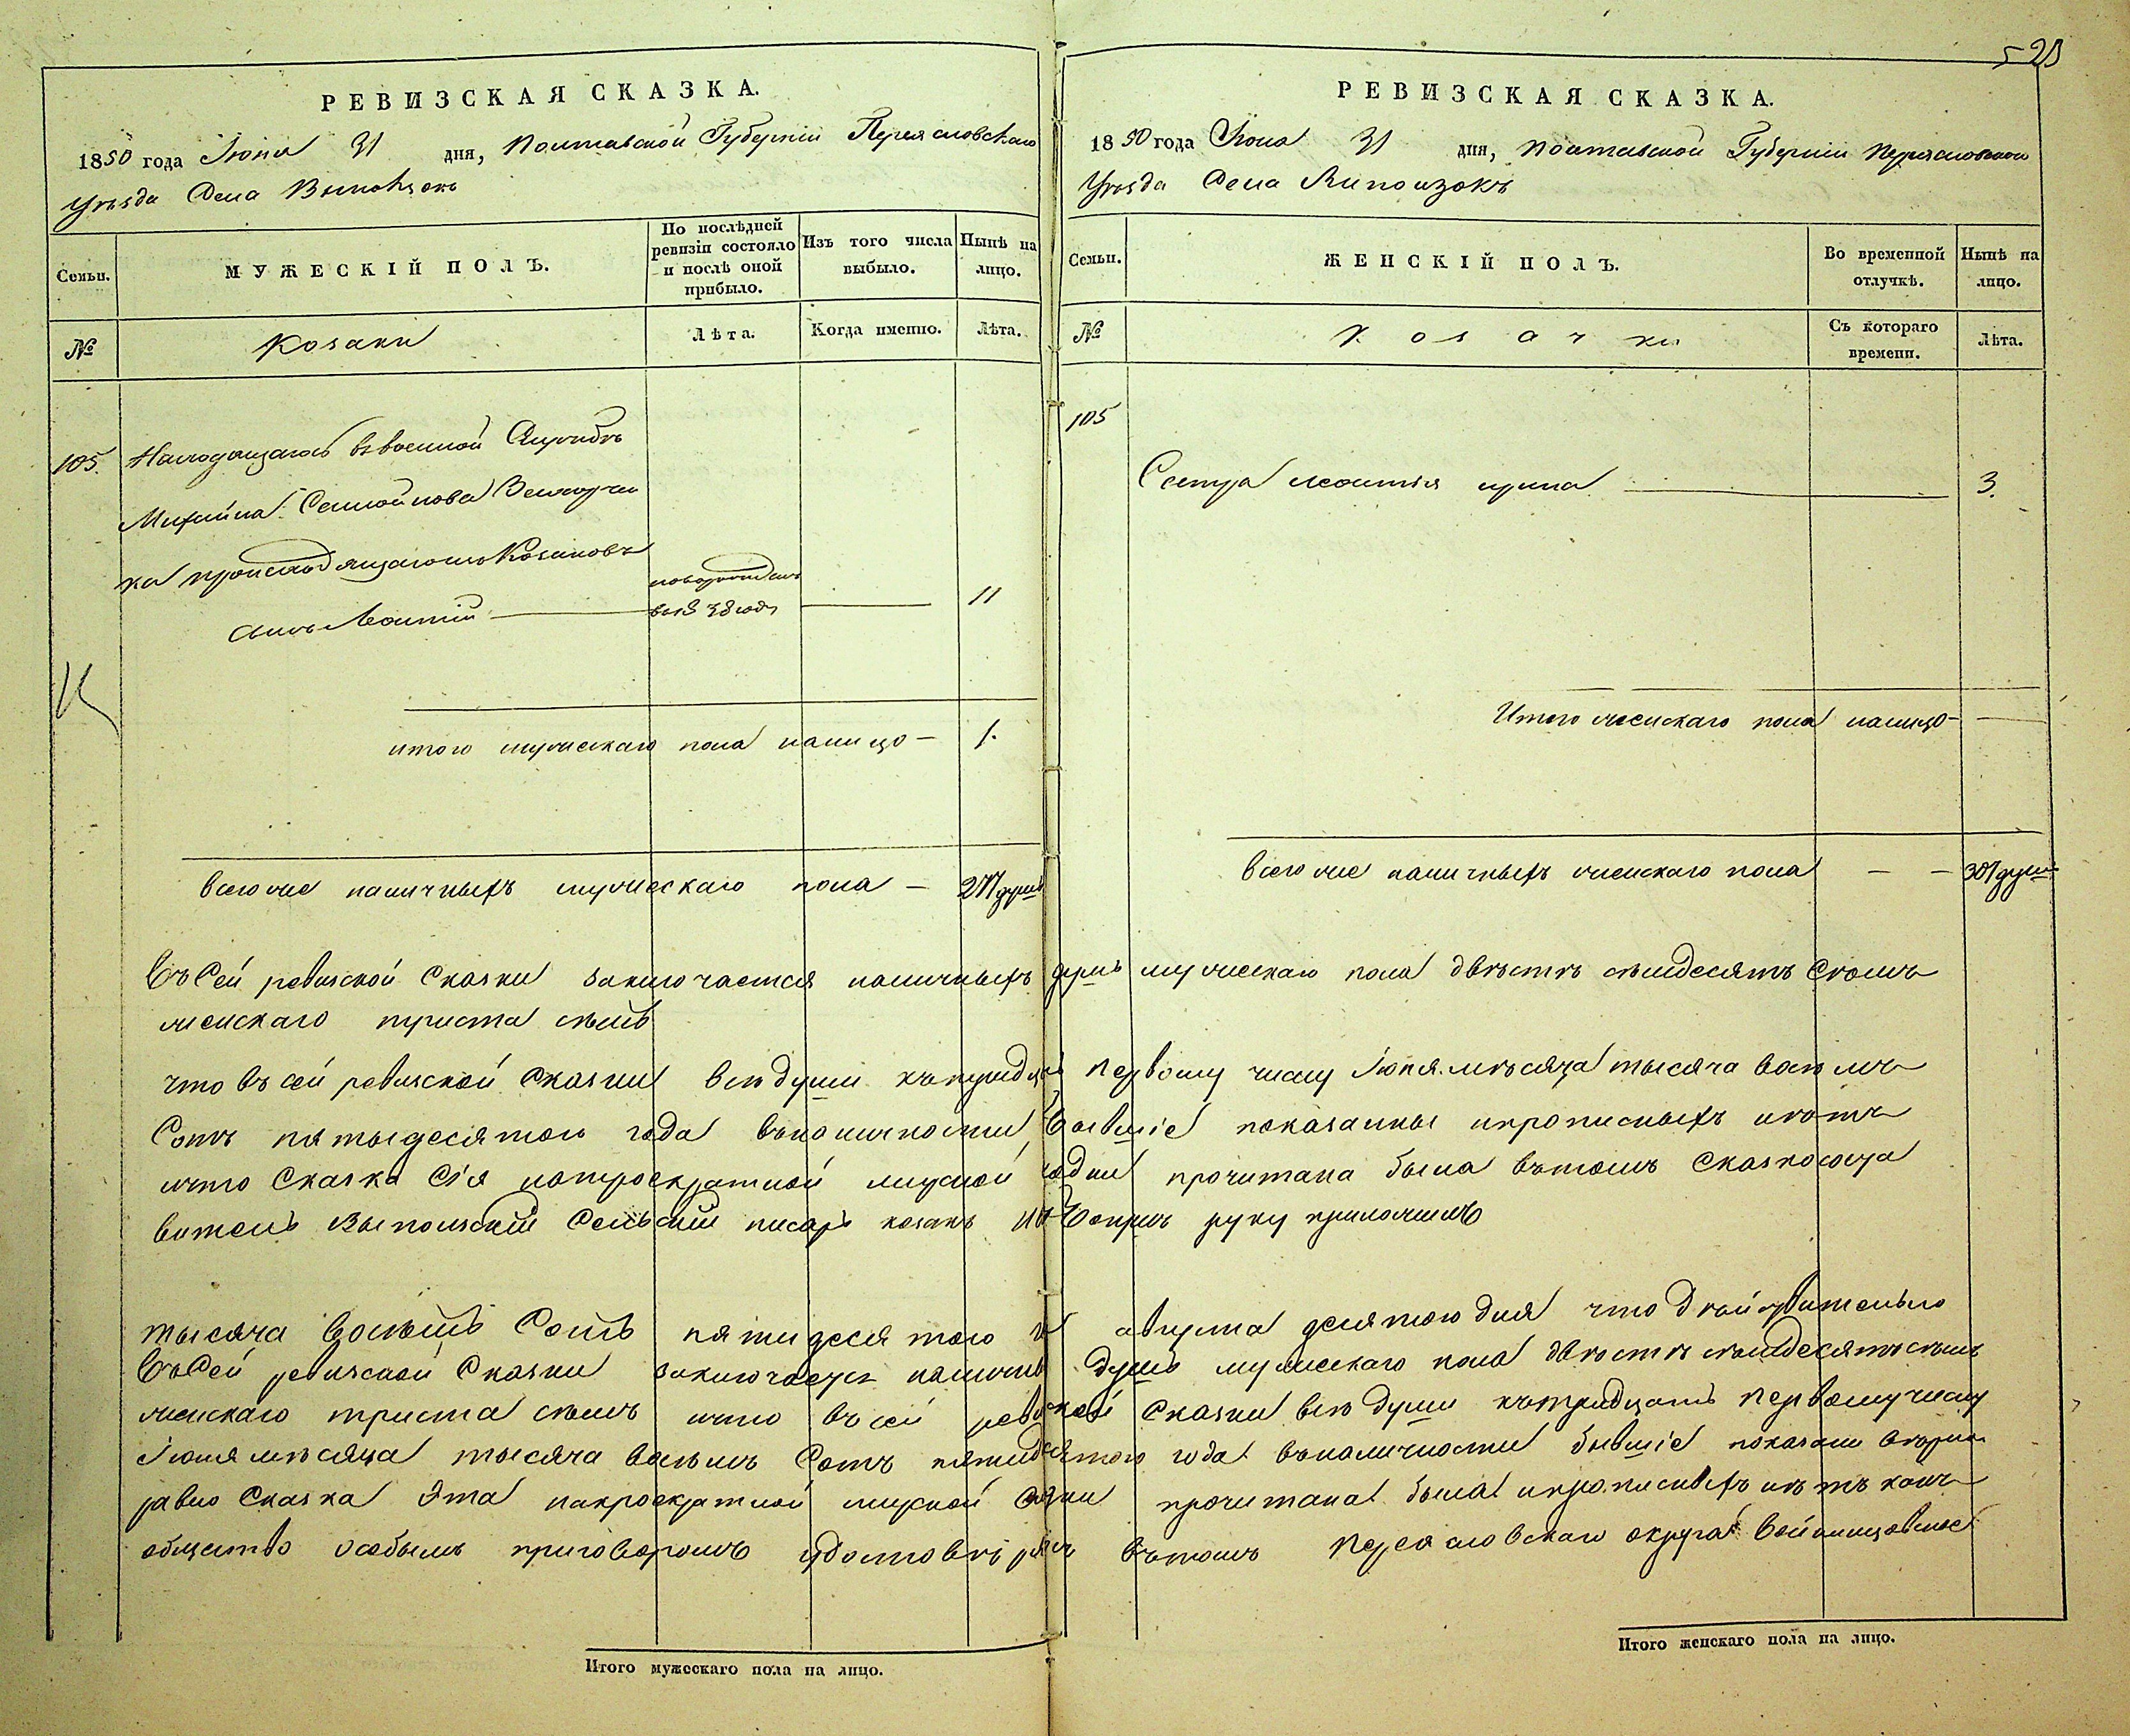 520
РЕВИЗСКАЯ СКАЗКА.
1850 года Іюня 31 дня, Полтавской Губерніи Переясловскаго
Уѣзда Села Выползокъ
Семьи.
МУЖЕСКІЙ ПОЛЪ.
По послѣдней ревизіи состояло и послѣ оной прибыло.
Изъ того числа выбыло.
Нынѣ на лицо.
№
Козаки
Лѣта.
Когда именно.
Лѣта.
105. Находящагось въ военной Службѣ
Михайла Самойлова
ка происходящагоизъ Козаковъ
новорожденъ
сынъ Леонтій въ 1838 годъ 11
итого мужескаго пола налицо — 1.
всего же наличныхъ мужескаго пола — 277 душъ
РЕВИЗСКАЯ СКАЗКА.
1850 года Іюня 31 дня, Полтавской Губерніи Переясловскаго
Уѣзда Села Выползокъ
Семьи.
ЖЕНСКІЙ ПОЛЪ.
Во временной отлучкѣ.
Нынѣ на лицо.
№
Козачки
Съ котораго времени.
Лѣта.
105
Сестра Леонтія 3.
Итого женскаго пола налицо —
всего же наличныхъ женскаго пола — — 307 душъ
Въ Сей ревизской Сказки заключается наличныхъ душъ мужескаго пола двѣстѣ сѣмдесятъ сѣмъ
женскаго триста сѣмъ
что въ сей ревизской Сказки всѣ души къ тридцать первому числу Іюня мѣсяца тысяча восемъ
Сотъ пятьдесятого года въ наличности бывшіе показаны и прописныхъ нѣтъ
и что Сказка Сія на троекратной мирской сходки прочитана была въ томъ Сказкососта
витель Выползскій Сельскій писарь козакъ руку приложилъ
тысяча восемь Сотъ пятидесятого года августа десятого дня что дѣйствительно
Въ Сей ревизской Сказки заключается наличныхъ душъ мужескаго пола двѣстѣ сѣмдесятъ сѣмъ
женскаго триста сѣмъ и что въ сей ревизской Сказки всѣ души къ тридцать первому числу
Іюня мѣсяца тысяча восемъ Сотъ пятидесятого года въ наличности бывшіе показаны
равно Сказка Эта на троекратной мирской сходки прочитана была и прописныхъ нѣтъ
общество особымъ приговоромъ въ томъ Переясловскаго округа
Итого мужескаго пола на лицо.
Итого женскаго пола на лицо.